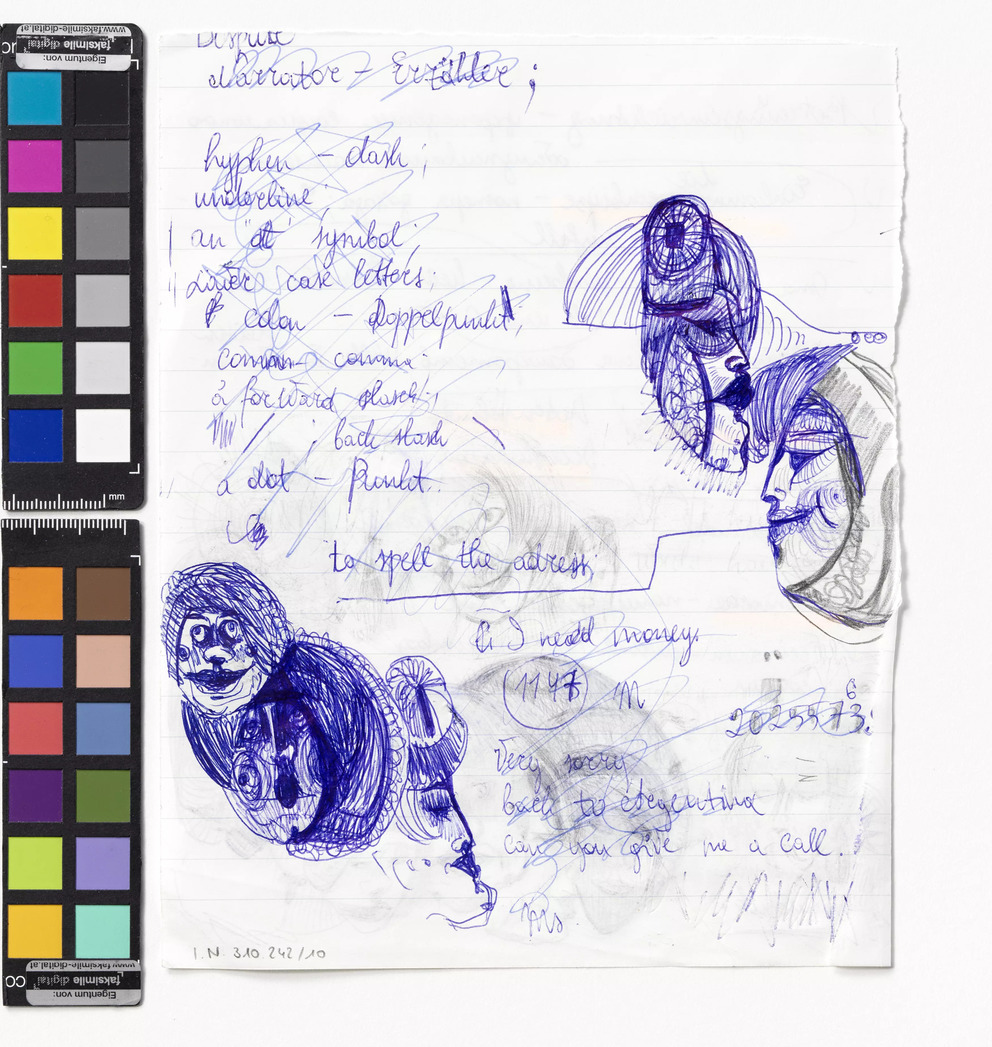 www.faksimile-digital.at
faksimile digital
Eigentum von:
Despite
Narrator - Erzähler;
hyphen - dash;
underline;
an "at" symbol;
Lower case letters;
colon - Doppelpunkt;
comma
a forward slasch;
/ ; back slash \
a dot - Punkt.
to spell the adress;
I need money.
(1147) M
6
2025973:
Very sorry
back to Argentina
can you give me a call.
I.N. 310.242/10
mm
www.faksimile-digital.at
faksimile digital
Eigentum von: